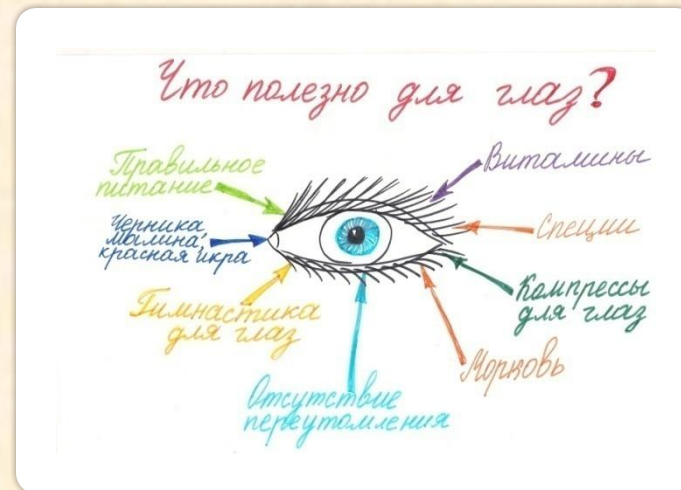 Что полезно для глаз?
Правильное
питание
Черника,
малина,
красная икра
Гимнастика
для глаз
Отсутствие
переутомления
Витамины
Специи
Компрессы
для глаз
Морковь